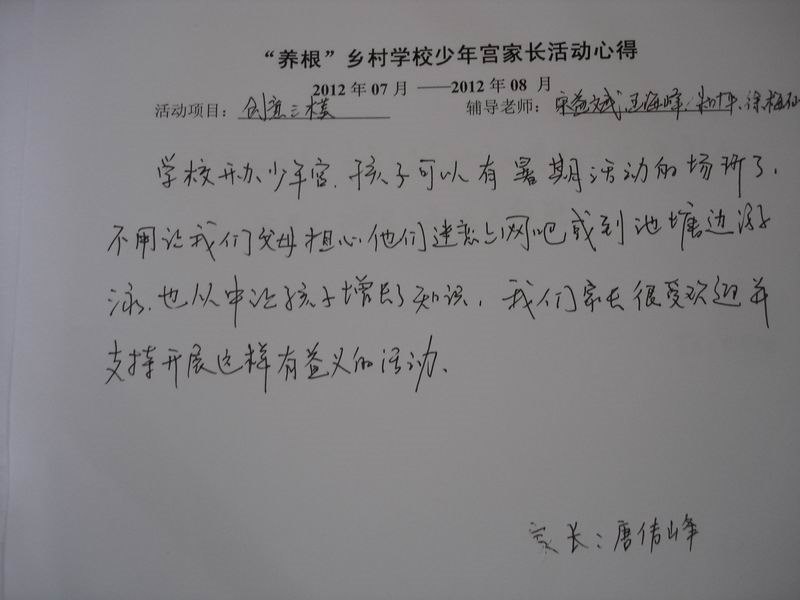 “养根”乡村学校少年宫家长活动心得
2012 年 07 月 ——2012 年 08 月
活动项目： 创意三模 辅导老师： 宋益斌 王海峰
学校开办少年宫，孩子可以有暑期活动的场所了，
不用让我们父母担心他们迷恋上网吧或到池塘边游
泳，也从中让孩子增长了知识，我们家长很受欢迎并
支持开展这样有益义的活动、
家长：唐伟峰